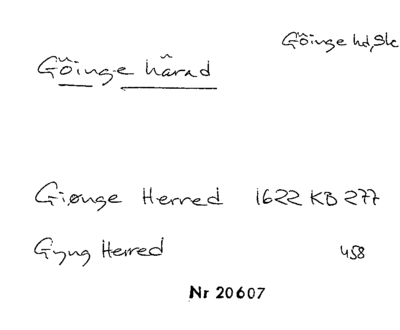 Göinge hd, Sk
Göinge härad
Giønge Herred 1622 KB 277
Gyng Herred 458
Nr 20607